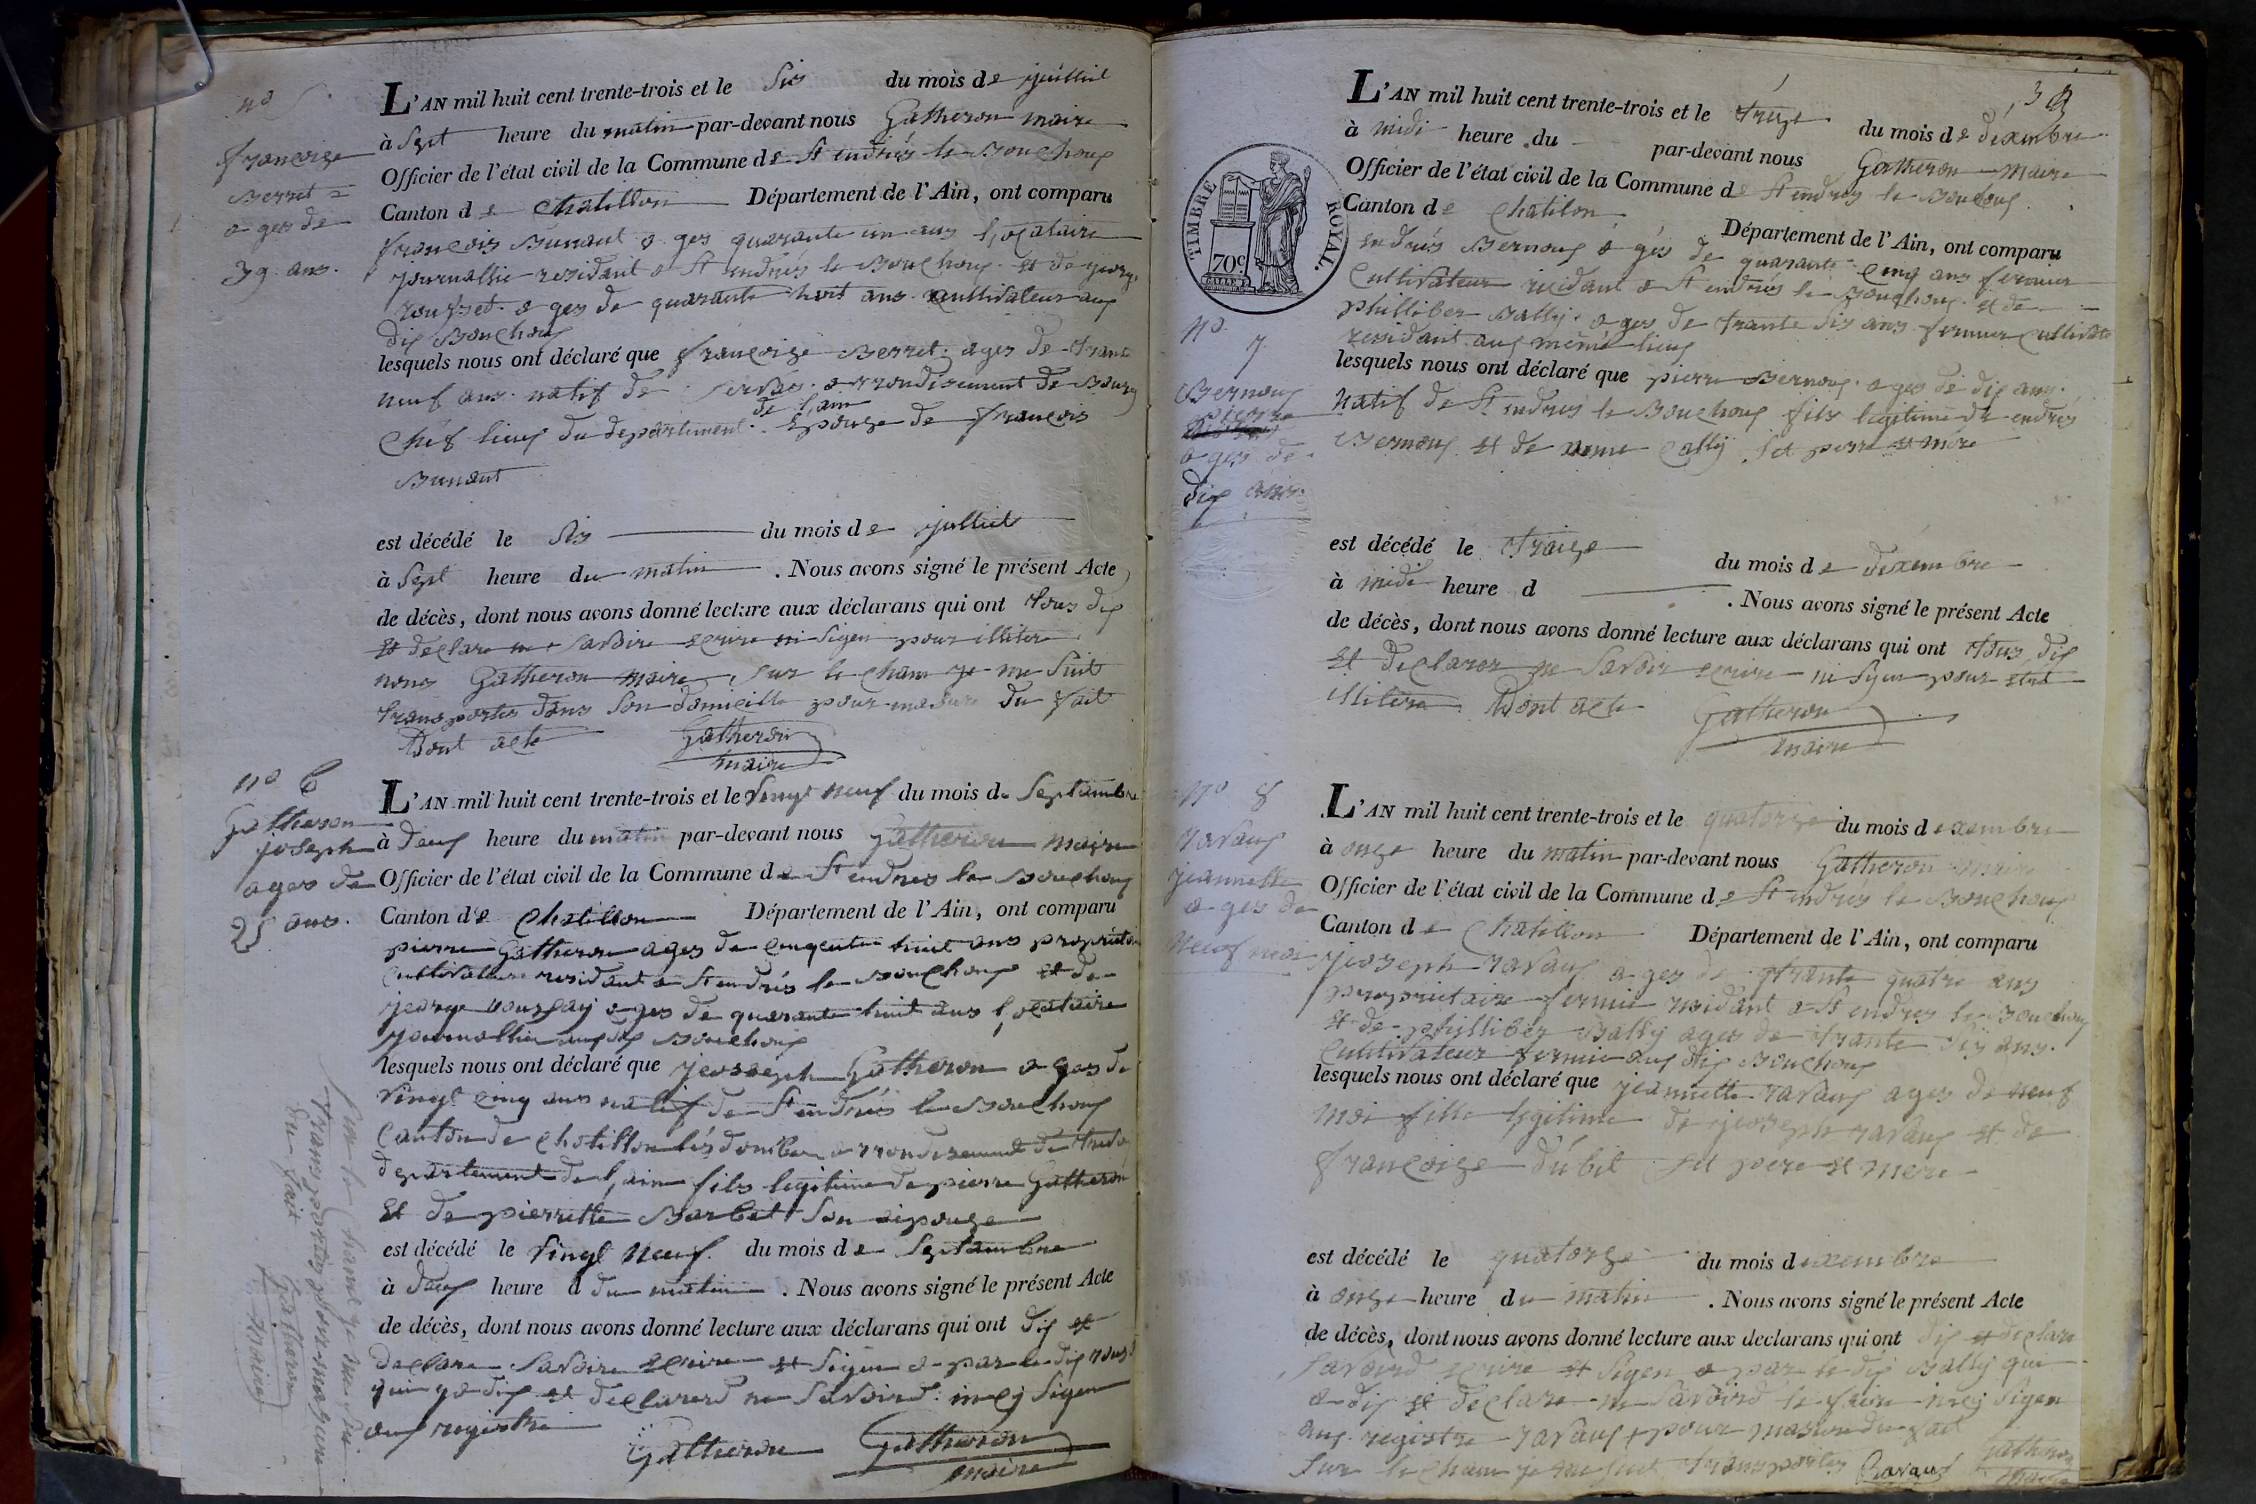 no 5
françoize
Berret =
ages de
39 ans.
L'AN mil huit cent trente-trois et le Six du mois de juilliet
à Sept heure du matin par-devant nous Gatheron maire
Officier de l'état civil de la Commune de St endrés le Bouchoux
Canton de Chatillon Département de l'Ain, ont comparu
françois Bunant a ges quarante un ans locataire
journallie residant a St endrés le Bouchoux et de george
rousset ages de quarante huit ans cultivateur aux
dis Bouchoux
lesquels nous ont déclaré que françoize Berret ages de trante
neuf ans natif de Servas arrondisement de Bourg
de l'ain
Chéf lieux du departiment Epouze de françois
Bunant
est décédé le Six du mois de julliet
à Sept heure du matin . Nous avons signé le présent Acte
de décès, dont nous avons donné lecture aux déclarans qui ont tous dis
et declare ne Savoire ecrire ni Sigen pour illitere
nous Gatheron maire Sur le cham je me Suit
transportes dans Son domicille pour masure du fait
Dont acte Gatheron
maire
no 6
Gatheron
joseph
ages de
25 ans.
L'AN mil huit cent trente-trois et le Vingt neuf du mois de Septambre
à deux heure du matin par-devant nous Gatheron maire
Officier de l'état civil de la Commune de St endres le Bouchoux
Canton de Chatillon Département de l'Ain, ont comparu
pierre Gatheron ages de cinqcente huit ans propriétaire
Cultivateur residant a St endrés le Bouchoux et de
jeorge rousset ages de quarante huit ans locataire
journallier aux dis Bouchoux
lesquels nous ont déclaré que jeoseph Gatheron ages de
Vingt cinq ans natif de St endrés le Bouchoux
Canton de Chatillon lés dombes arrondisement de
departement de l'ain fils legitime de pierre Gatheron
et de pierrette Barbet Son epouze
est décédé le Vingt Neuf. du mois de Septambre
à deux heure d du matin . Nous avons signé le présent Acte
de décès, dont nous avons donné lecture aux déclarans qui ont dis et
declare Savoire ecrire et Sigen a par le dis
qui a dis et declarerd ne Savoird Sigen
aux registre
Gatheron Gatheron
maire
Sur le cham je me Sui
transportes pour masure
du fait
Gatheron
maire
39
L'AN mil huit cent trente-trois et le treize du mois de déxembre
à midi heure du par-devant nous Gatheron maire
Officier de l'état civil de la Commune de St endres le Bouchoux
Canton de Chatilon Département de l'Ain, ont comparu
TIMBRE ROYAL.
70c
no
7
Bernoux
pierre
ages de
dix ans
endrés Bernoux a gés de quarante cinq ans fermier
Cultivateur residant a St endres le Bouchoux et de
philliber Bally ages de trante Six ans fermier Cultivate
residant aux même lieux
lesquels nous ont déclaré que pierre Bernoux ages de dix ans
Natif de St endrés le Bouchoux fils legitime de endrés
Bernoux et de Cally Set pere et mère
est décédé le traize du mois de dexembre
à midi heure d . Nous avons signé le présent Acte
de décès, dont nous avons donné lecture aux déclarans qui ont tous dis
et declarer ne Savoir ecrire ni Sigen pour etre
illitére Dont acte Gatheron
maire
no 8
ravaux
jeannette
ages de
Neuf moi
L'AN mil huit cent trente-trois et le quatorze du mois dexembre
à onze heure du matin par-devant nous Gatheron maire
Officier de l'état civil de la Commune de St endrés le Bouchoux
Canton de Chatillon Département de l'Ain, ont comparu
jeoseph ravaux ages de trante quatre ans
propriétaire fermié residant a St endres le Bouchoux
et de philliber Bally ages de trante Six ans
Cultivateur fermie aux dis Bouchoux
lesquels nous ont déclaré que jeannette ravaux ages de neuf
moi fille legitime de jeoseph ravaux et de
françoize dubit Set pere et mere
est décédé le quatorze du mois dexembre
à onze heure du matin . Nous avons signé le présent Acte
de décès, dont nous avons donné lecture aux declarans qui ont dis et declare
Savoird ecrire et Sigen a par le dis Bally qui
a dis et declare ne Savoird le faire Sigen
aux registre ravaux pour masure du fait
Sur le cham je me Suit transportes Ravaux Gatheron
maire